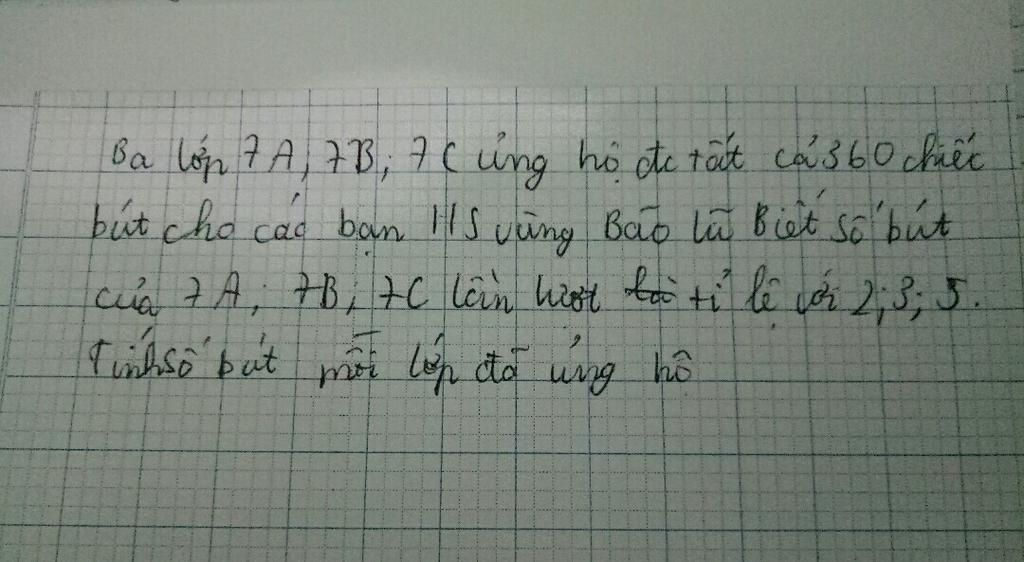 Ba lớp 7A, 7B; 7C ủng hộ đc tất cả 360 chiếc
bút cho các bạn HS vùng Bão lũ Biết số bút
của 7A; 7B; 7C lần lượt là tỉ lệ với 2; 3; 5.
Tính số bút mỗi lớp đã ủng hộ